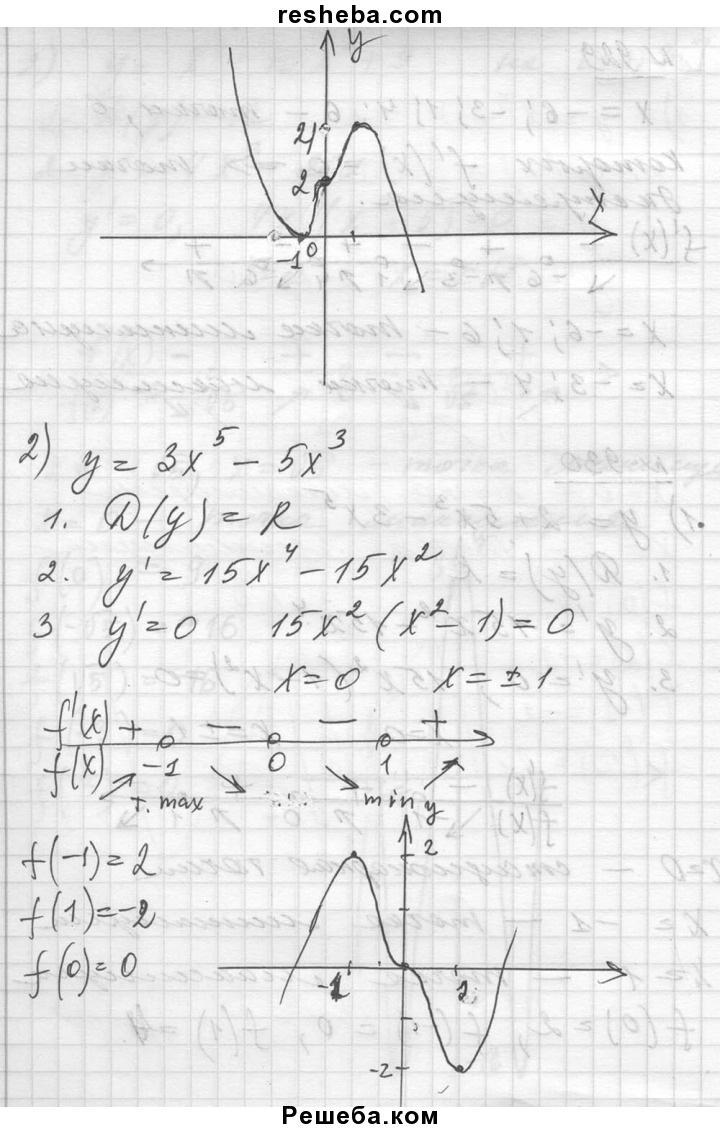 resheba.com
y
2
2
x
-1 0
2) y = 3x⁵ - 5x³
1. D(y) = R
2. y' = 15x⁴ - 15x²
3 y' = 0 15x² (x² - 1) = 0
x = 0 x = ± 1
f'(x) + - - +
f(x) -1 0 1
т. max min
y
f(-1) = 2
f(1) = -2
f(0) = 0
2
-1 1
-2
Решеба.ком